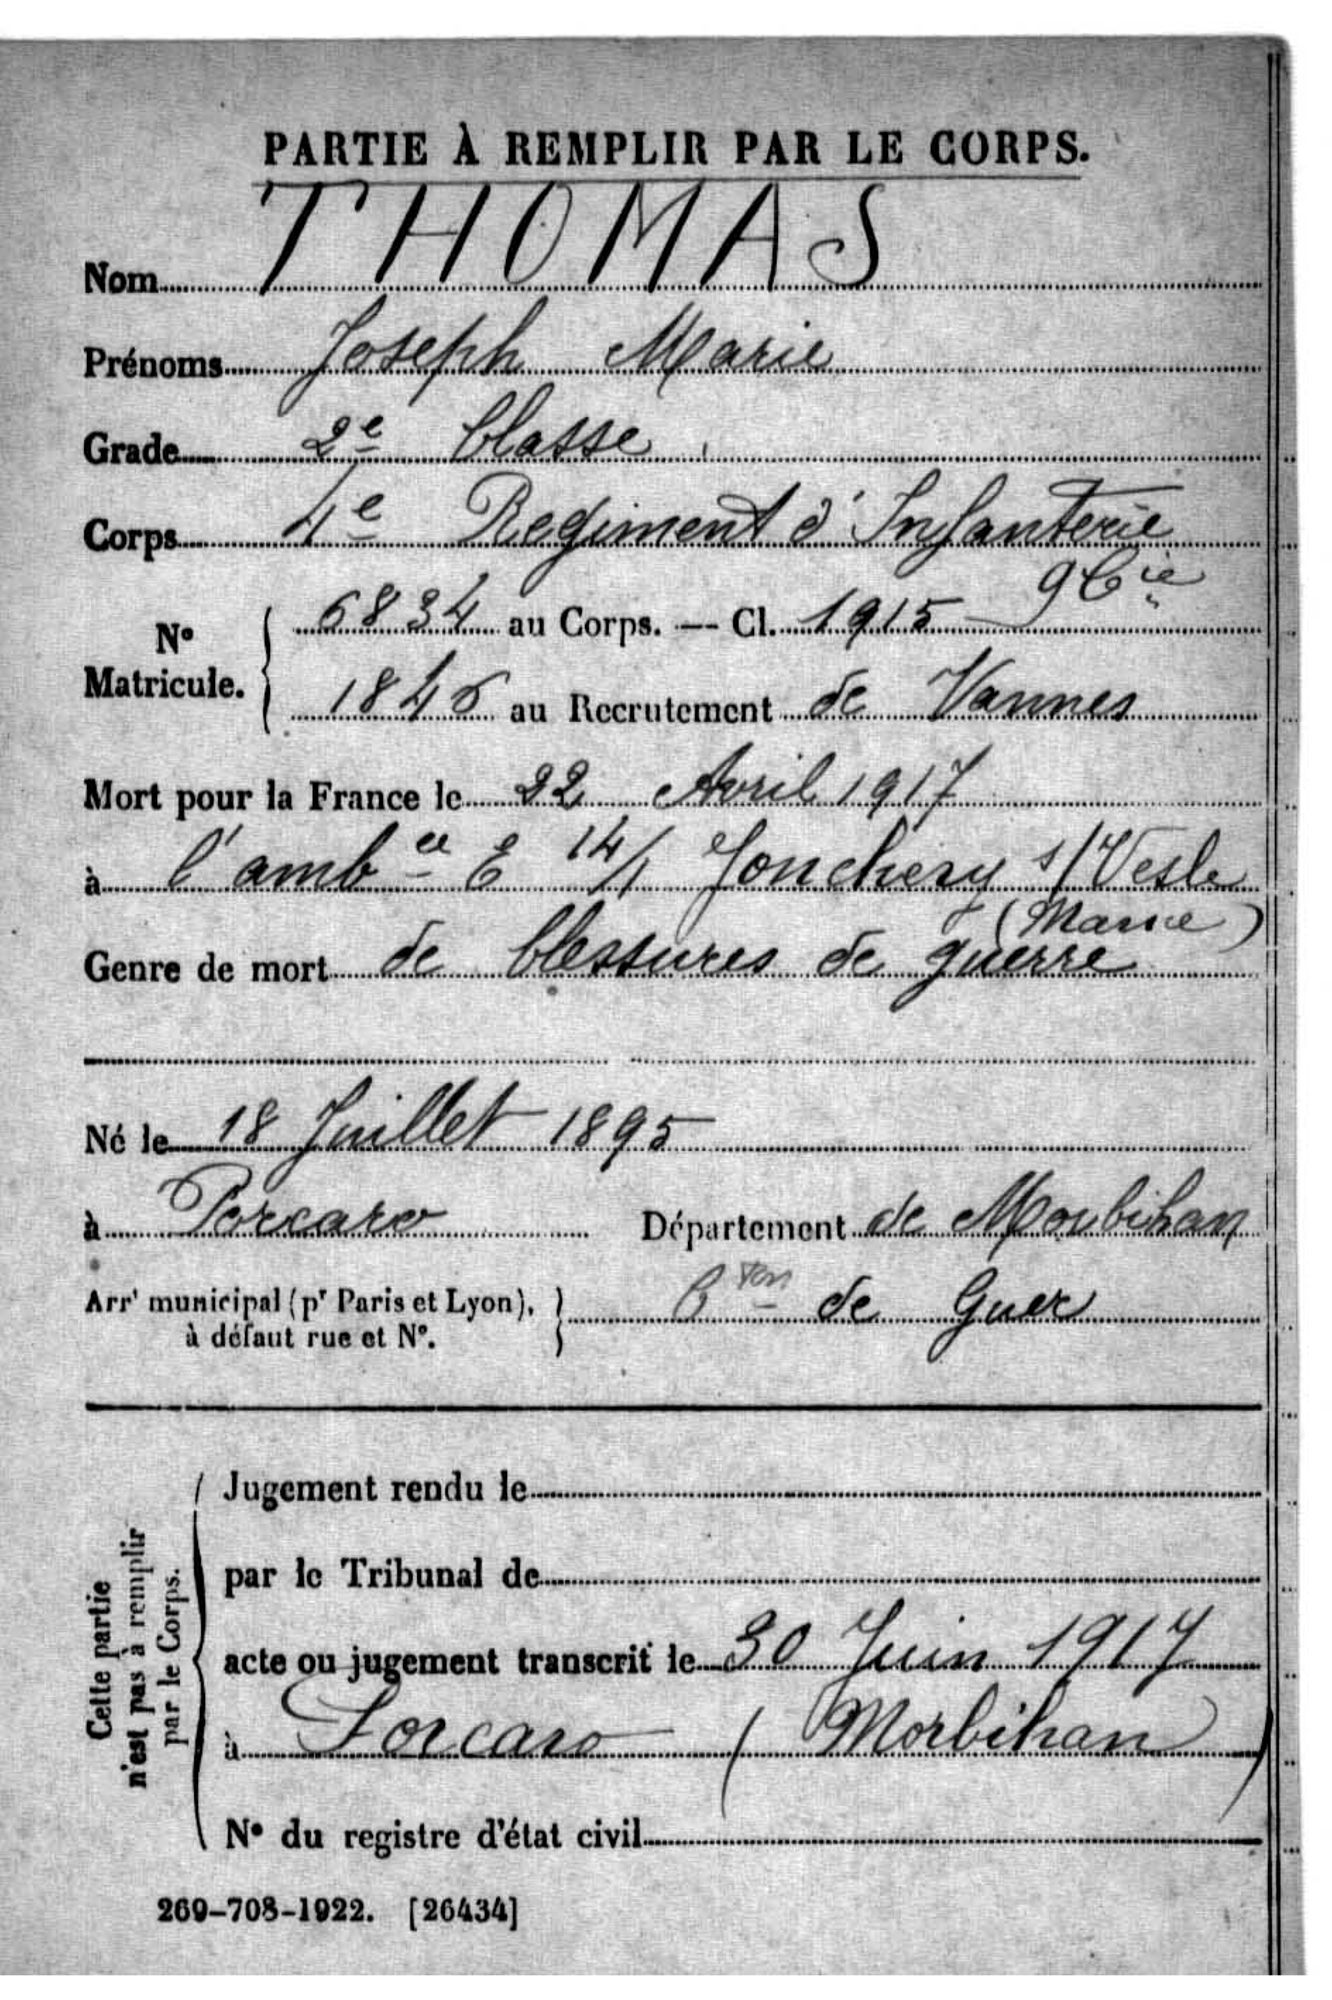 PARTIE À REMPLIR PAR LE CORPS.
Nom THOMAS
Prénoms Joseph Marie
Grade 2e Classe
Corps 4e Regiment d'Infanterie
9 Cie
N° Matricule. 6834 au Corps. — Cl. 1915
1846 au Recrutement de Vannes
Mort pour la France le 22 Avril 1917
à l'ambce E 14/1 Jonchery s/Vesle
(Marne)
Genre de mort de blessures de guerre
Né le 18 Juillet 1895
à Porcaro Département de Morbihan
Arrt municipal (pr Paris et Lyon), Cton de Guer
à défaut rue et N°.
Cette partie
n'est pas à remplir
par le Corps.
Jugement rendu le
par le Tribunal de
acte ou jugement transcrit le 30 Juin 1917
à Porcaro (Morbihan)
N° du registre d'état civil
269-708-1922. [26434]